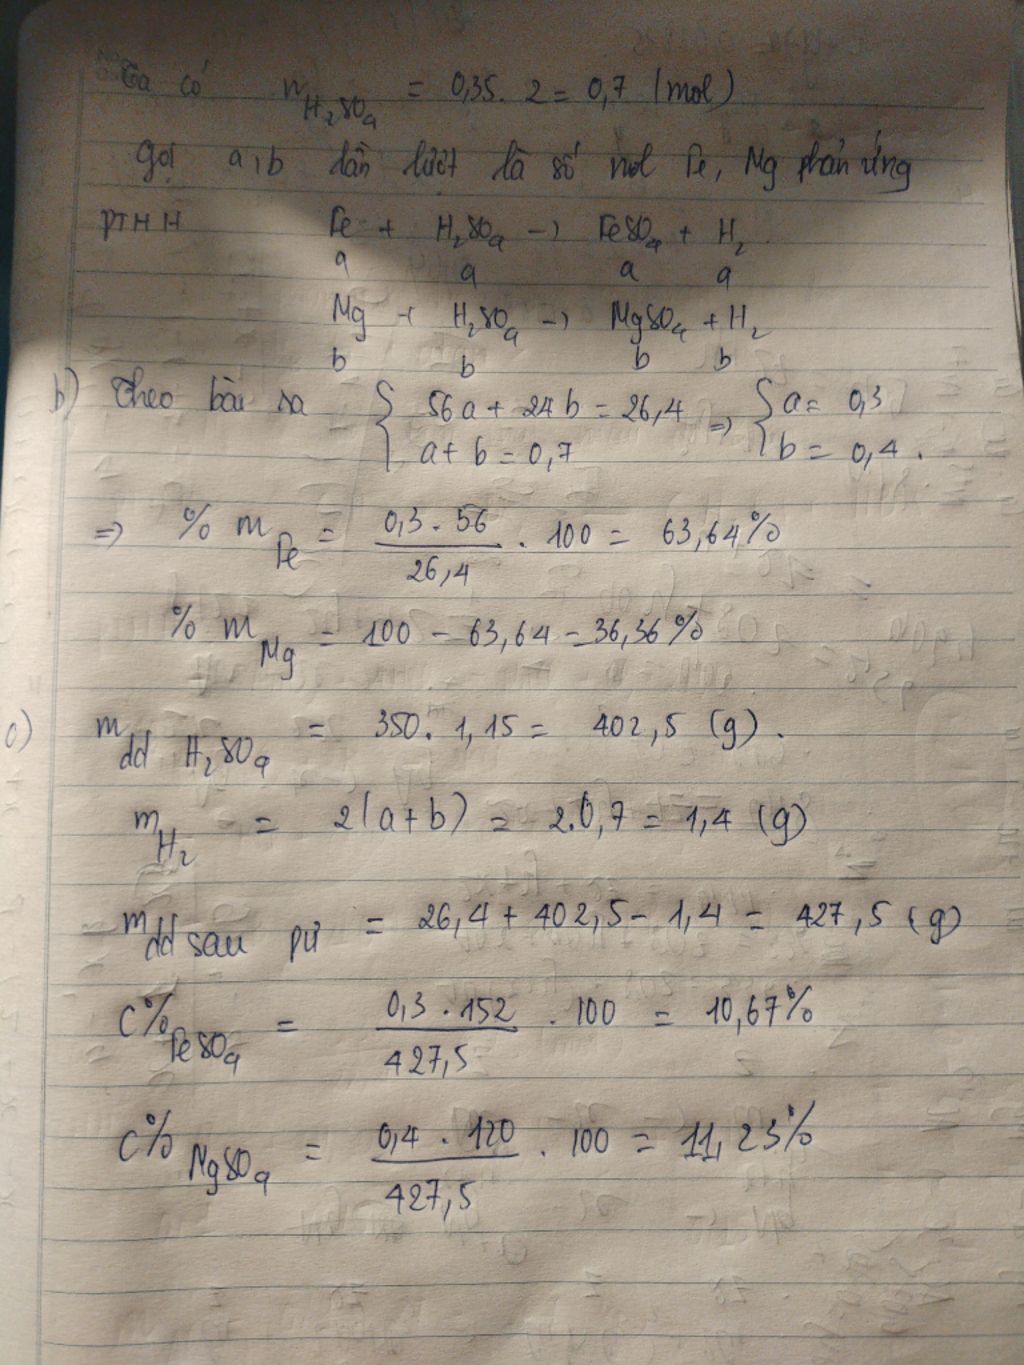 Ta có n H₂SO₄ = 0,35 . 2 = 0,7 (mol)
Gọi a, b lần lượt là số mol Fe, Mg phản ứng
PTHH Fe + H₂SO₄ → FeSO₄ + H₂
a a a a
Mg + H₂SO₄ → MgSO₄ + H₂
b b b b
b) Theo bài ra { 56a + 24b = 26,4 => { a = 0,3
a + b = 0,7 b = 0,4 .
=> % m Fe = 0,3 . 56 / 26,4 . 100 = 63,64%
% m Mg = 100 - 63,64 = 36,36%
c) m dd H₂SO₄ = 350 . 1,15 = 402,5 (g) .
m H₂ = 2(a+b) = 2.0,7 = 1,4 (g)
m dd sau pư = 26,4 + 402,5 - 1,4 = 427,5 (g)
C% FeSO₄ = 0,3 . 152 / 427,5 . 100 = 10,67%
C% MgSO₄ = 0,4 . 120 / 427,5 . 100 = 11,23%